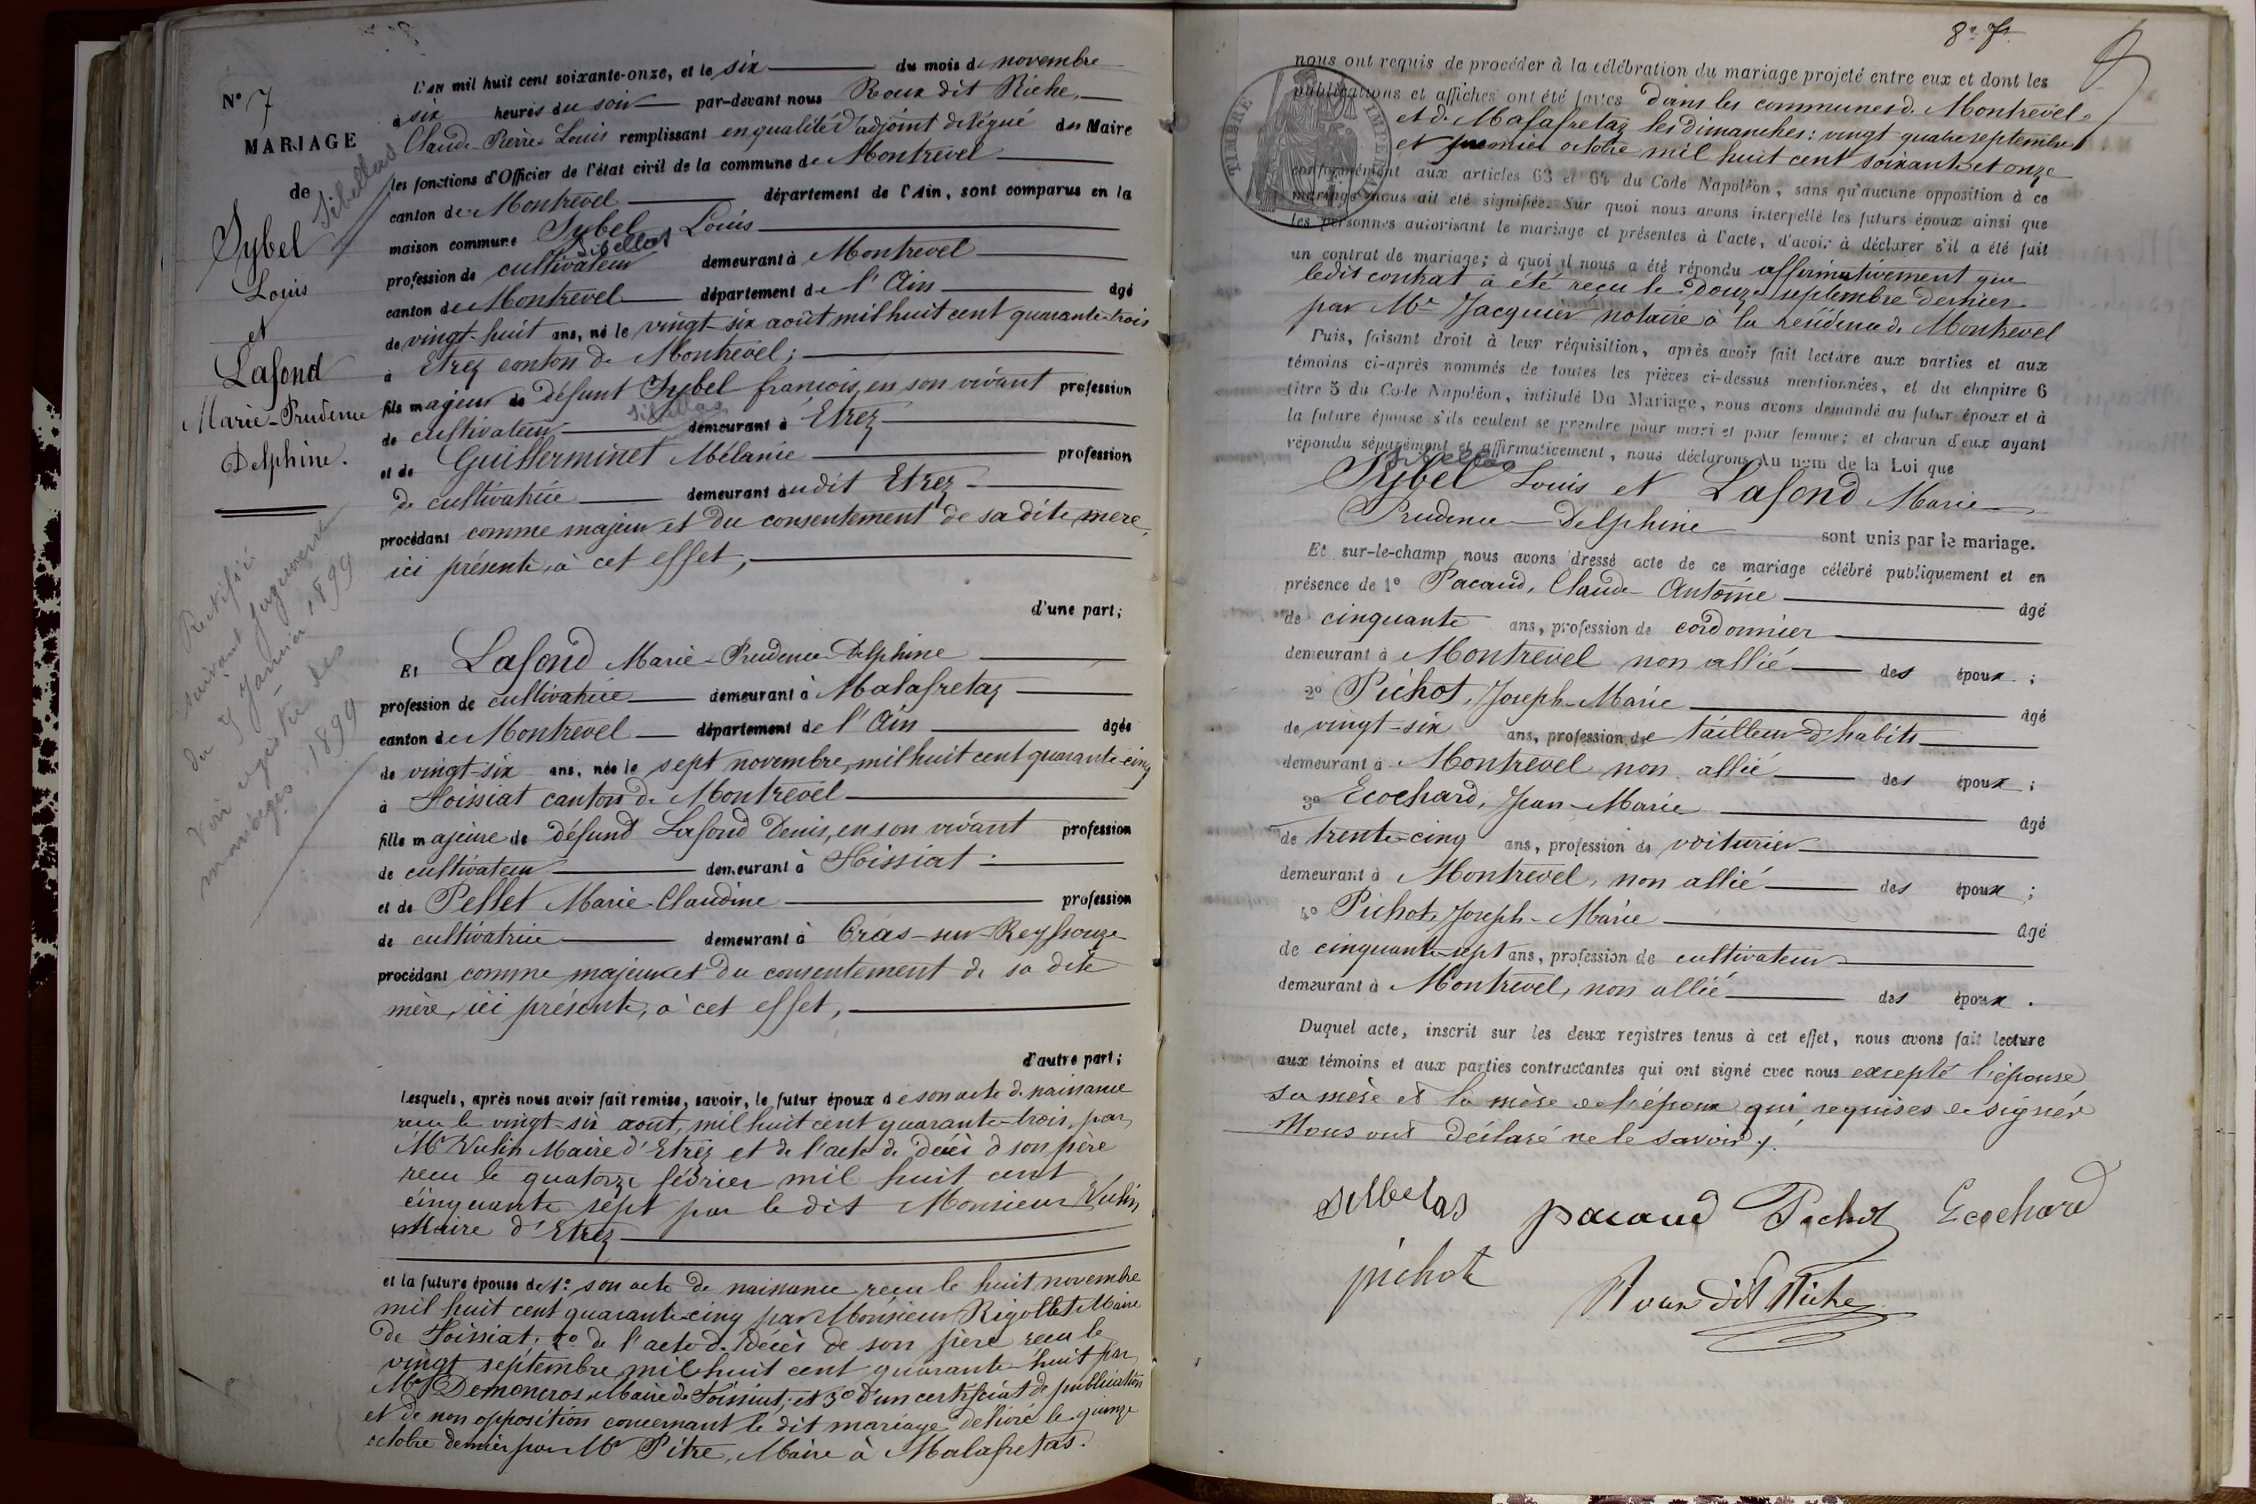 N° 7
MARIAGE
de
Sibellas
Sybel
Louis
et
Lafond
Marie-Prudence
Delphine.
Rectifié
suivant jugement
du 7 Janvier 1899
Voir registre des
mariages 1899
L'an mil huit cent soixante-onze, et le six du mois de novembre
à six heures du soir par-devant nous Roux dit Riche,
Claude-Pierre-Louis remplissant en qualité d'adjoint délégué du Maire
les fonctions d'Officier de l'état civil de la commune de Montrevel
canton de Montrevel département de l'Ain, sont comparus en la
maison commune Sybel Louis
Sibellas
profession de cultivateur demeurant à Montrevel
canton de Montrevel département de l'Ain âgé
de vingt-huit ans, né le vingt-six août mil huit cent quarante-trois
à Etrez canton de Montrevel;
fils majeur de défunt Sybel françois, en son vivant profession
Sibellas
de cultivateur demeurant à Etrez
et de Guillerminet Mélanie profession
de cultivatrice demeurant audit Etrez
procédant comme majeur et du consentement de sa dite mère,
ici présente, à cet effet,
d'une part;
Et Lafond Marie-Prudence-Delphine
profession de cultivatrice demeurant à Malafretaz
canton de Montrevel département de l'Ain âgée
de vingt-six ans, née le sept novembre, mil huit cent quarante-cinq
à Foissiat canton de Montrevel
fille majeure de défund Lafond Denis, en son vivant profession
de cultivateur demeurant à Foissiat.
et de Pellet Marie-Claudine profession
de cultivatrice demeurant à Cras-sur-Reyssouze
procédant comme majeure et du consentement de sa dite
mère, ici présente, à cet effet,
d'autre part;
Lesquels, après nous avoir fait remise, savoir, le futur époux de son acte de naissance
reçu le vingt-six août, mil huit cent quarante-trois, par
Mr Vulin Maire d'Etrez et de l'acte de décès d son père
reçu le quatorze février mil huit cent
cinquante sept par le dit Monsieur Vulin,
Maire d'Etrez
et la future épouse de 1° son acte de naissance reçu le huit novembre
mil huit cent quarante-cinq par Monsieur Rigollet Maire
de Foissiat; 2° de l'acte de décès de son père reçu le
vingt septembre mil huit cent quarante-huit par
Mr Demoneros Maire de Foissiat; et 3° d'un certificat de publication
et de non opposition concernant le dit mariage délivré le quinze
octobre dernier par Mr Pitre, Maire à Malafretas.
nous ont requis de procéder à la célébration du mariage projeté entre eux et dont les
publications et affiches ont été faites dans les communes de Montrevel
et de Malafretaz les dimanches: vingt-quatre septembre
et premier octobre mil huit cent soixante et onze
conformément aux articles 63 et 64 du Code Napoléon, sans qu'aucune opposition à ce
mariage nous ait été signifiée. Sur quoi nous avons interpellé les futurs époux ainsi que
les personnes autorisant le mariage et présentes à l'acte, d'avoir à déclarer s'il a été fait
un contrat de mariage; à quoi il nous a été répondu affirmativement que
ledit contrat a été reçu le douze septembre dernier
par Me Jacquier notaire à la résidence de Montrevel
Puis, faisant droit à leur réquisition, après avoir fait lecture aux parties et aux
témoins ci-après nommés de toutes les pièces ci-dessus mentionnées, et du chapitre 6
titre 5 du Code Napoléon, intitulé Du Mariage, nous avons demandé au futur époux et à
la future épouse s'ils veulent se prendre pour mari et pour femme; et chacun d'eux ayant
répondu séparément et affirmativement, nous déclarons Au nom de la Loi que
Sibellas
Sybel Louis et Lafond Marie
Prudence-Delphine sont unis par le mariage.
Et sur-le-champ nous avons dressé acte de ce mariage célébré publiquement et en
présence de 1° Pacaud, Claude-Antoine âgé
de cinquante ans, profession de cordonnier
demeurant à Montrevel non allié des époux;
2° Pichot, Joseph-Marie âgé
de vingt-six ans, profession de tailleur d'habits
demeurant à Montrevel non allié des époux;
3° Ecochard, Jean-Marie âgé
de trente-cinq ans, profession de voiturier
demeurant à Montrevel, non allié des époux;
4° Pichot, Joseph-Marie âgé
de cinquante-sept ans, profession de cultivateur
demeurant à Montrevel, non allié des époux.
Duquel acte, inscrit sur les deux registres tenus à cet effet, nous avons fait lecture
aux témoins et aux parties contractantes qui ont signé avec nous excepté l'épouse
sa mère et la mère de l'époux qui requises de signer
Nous ont déclaré ne le savoir.
sibelas pacaud Pichot Ecochard
pichot Roux dit Riche
TIMBRE IMPERIAL